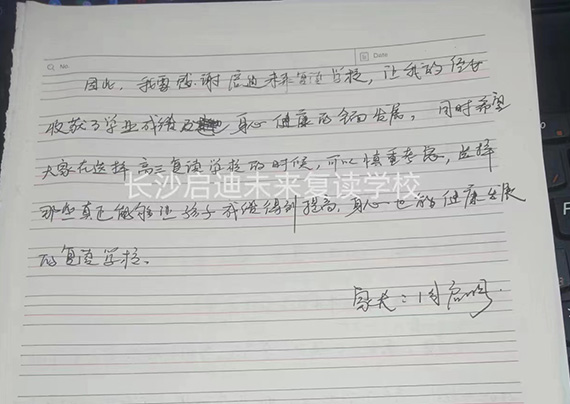 No.
Date
因此，我要感谢启迪未来复读学校，让我的侄女
收获了学业成绩及身心健康的全面发展，同时希望
大家在选择高三复读学校的时候，可以慎重考虑，选择
长沙启迪未来复读学校
那些真正能够让孩子成绩得到提高，身心也能健康发展
的复读学校。
家长：周